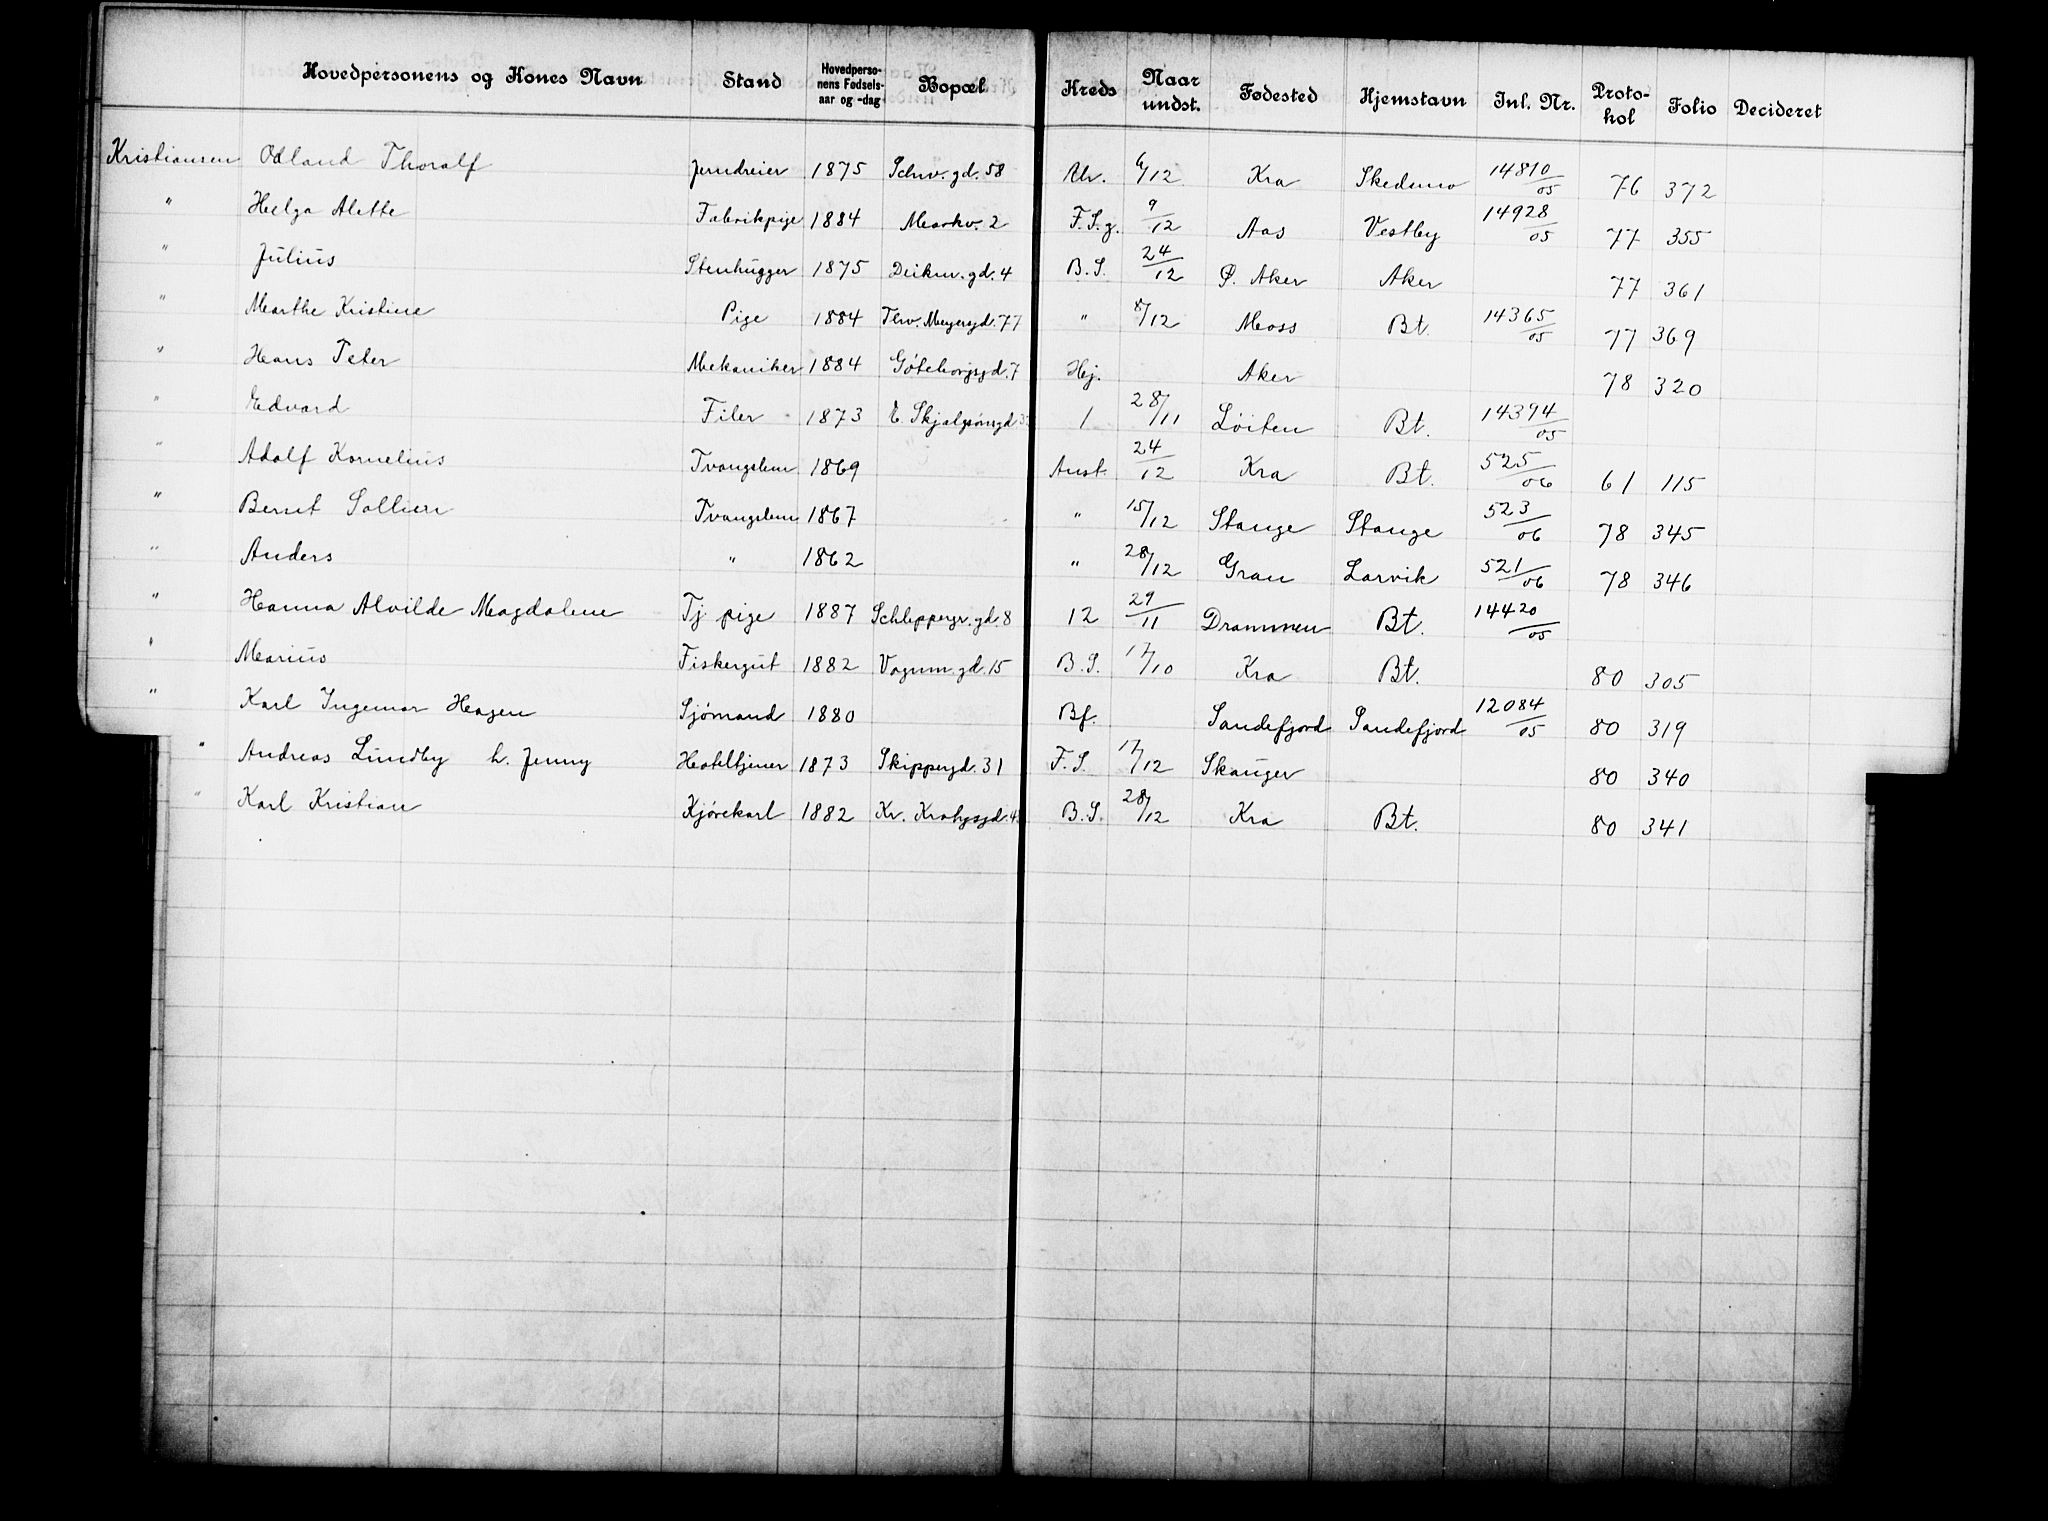 Hovedpersonens og Kones Navn Stand Hovedperso-nens Fødsels-aar og -dag Bopæl Kreds Naar undst. Fødested Hjemstavn Inl. Nr. Proto-kol Folio Decideret
Kristiansen Odland Thoralf Jerndreier 1875 Schw. gd. 58 6/12 Kra Skedsmo 14810/05 76 372
" Helga Alette Fabrikpige 1884 Markv. 2 F. S. g. 9/12 Aas Vestby 14928/05 77 355
" Julius Stenhugger 1875 Deikm. gd. 4 B. S. 24/12 Ø. Aker Aker 77 361
" Marthe Kristine Pige 1884 Thv. Meyersgd. 77 " 8/12 Moss Bt. 14365/05 77 369
" Hans Peter Mekaniker 1884 Göteborgsgd. 7 Hj. Aker 78 320
" Edvard Filer 1873 E. Skjalgsönsgd 1 28/11 Löiten Bt. 14394/05
" Adolf Kornelius Tvangslem 1869 Anst. 24/12 Kra Bt. 525/06 61 115
" Bernt Sollien Tvangslem 1867 " 15/12 Stange Stange 523/06 78 345
" Anders " 1862 " 28/12 Gran Larvik 521/06 78 346
" Hanna Alvilde Magdalene Tj pige 1887 Schleppegr. gd. 8 12 29/11 Drammen Bt. 14420/05
" Marius Fiskergut 1882 Vognm. gd. 15 B. S. 17/10 Kra Bt. 80 305
" Karl Ingemar Hagen Sjömand 1880 Bf. Sandefjord Sandefjord 12084/05 80 319
" Andreas Lundby h. Jenny Hoteltjener 1873 Skippergd. 31 F. S. 17/12 Skauger 80 340
" Karl Kristian Kjörekarl 1882 Kr. Krohgsgd. 4 B. S. 28/12 Kra Bt. 80 341